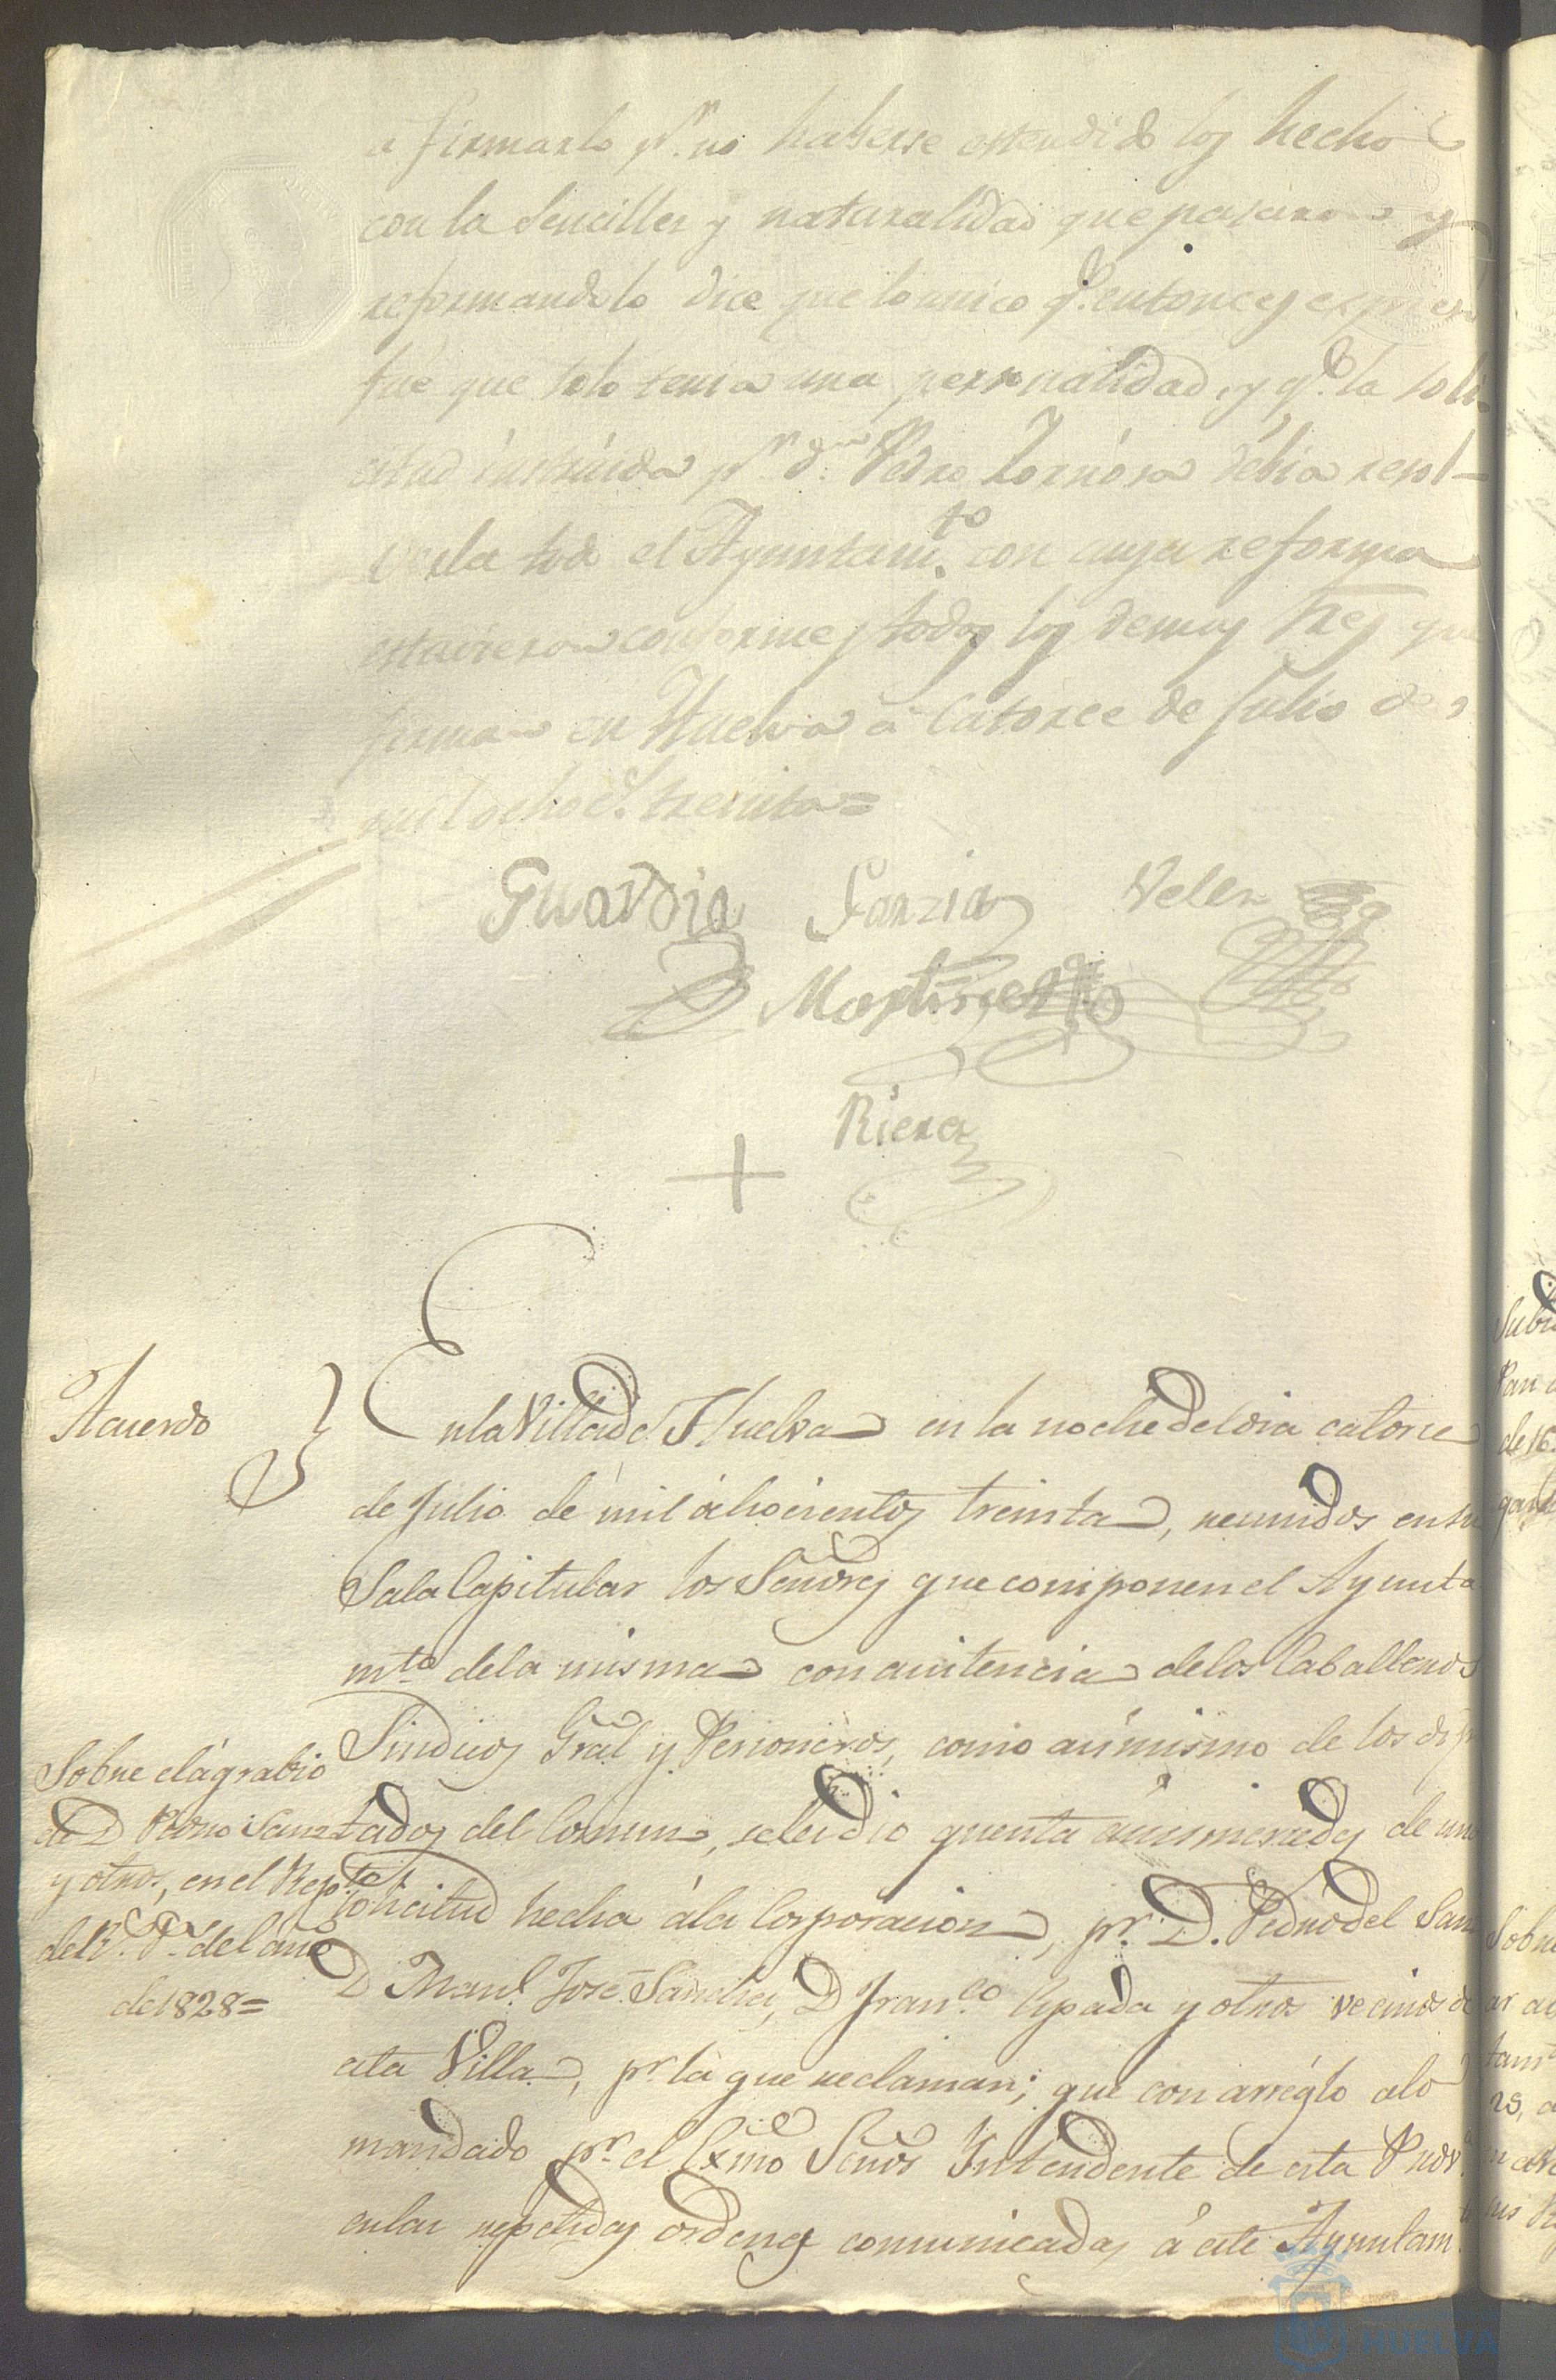 a firmarlo pr. no haberse estendido los hechos
con la sencillez y naturalidad que pasaron y
reformandolo dice que lo unico q.e entonces expresó
fue que solo tenia una personalidad, y q.e la soli-
citud instruida pr. dn. Pedro Zornosa debia resol-
verla todo el Ayuntam.to con cuya reforma
estuvieron conformes todos los demas Sres que
firman en Huelva á Catorce de Julio de
mil ochoc.s treinta=
Guardia Garzia Velez
Martinez
Riera
Acuerdo
En la Villa de Huelva en la noche del dia catorce
de Julio de mil ochocientos treinta, reunidos en su
Sala Capitular los Señores que componen el Ayunta
mto. de la misma con asistencia de los Caballeros
Sindicos Gral y Personeros, como asimismo de los dipu
tados del Comun, se les dio quenta á sus mercedes de una
solicitud hecha á la Corporacion, pr. D. Pedro del Sanz
D Manl. José Sanchez, D Fran.co Cepada y otros vecinos de
esta Villa, pr. la que reclaman; que con arreglo alo
mandado pr. el Exmo Señor Intendente de esta Prov.a
en las repetidas ordenes comunicadas á este Ayuntam.to
Sobre el ágrabio
de D Pedro Sanz
y otros, en el Rep.to
del del año
de 1828=
HUELVA